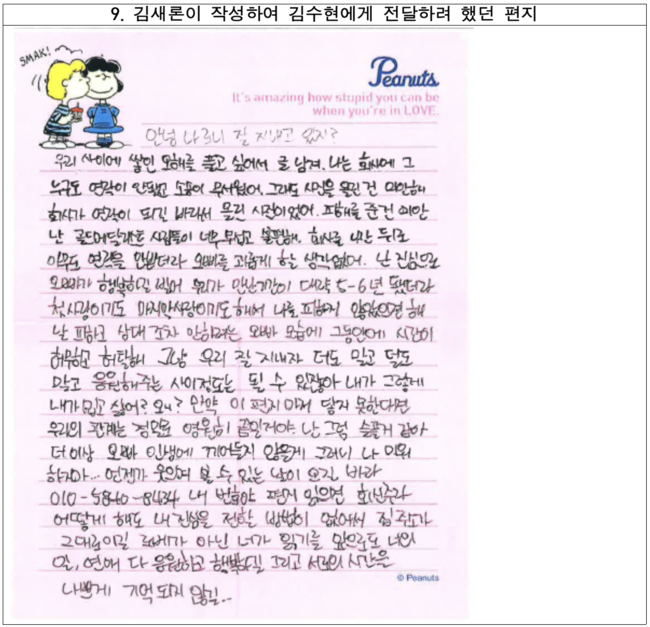 9. 김새론이 작성하여 김수현에게 전달하려 했던 편지
SMAK!
Peanuts
It's amazing how stupid you can be
when you're in LOVE.
안녕 나 로니 잘 지내고 있지?
우리 사이에 쌓인 오해를 풀고 싶어서 글 남겨. 나는 회사에 그
누구도 연락이 안됐고 소송이 무서웠어. 그래도 사진을 올린건 미안해
회사가 연락이 되길 바라서 올린 사진이었어. 피해를 준건 미안
난 골드메달리스트 사람들이 너무 무섭고 불편해. 회사를 나간 뒤로
아무도 연락을 안받더라 오빠를 괴롭게 할 생각없어. 난 진심으로
오빠가 행복하길 빌어 우리가 만난기간이 대략 5-6년 됐더라
첫사랑이기도 마지막사랑이기도 해서 나를 피하지 않았으면 해
날 피하고 상대 조차 안하려는 오빠 모습에 그동안에 시간이
허무하고 허탈해 그냥 우리 잘 지내자 더도 말고 덜도
말고 응원해주는 사이정도는 될 수 있잖아 내가 그렇게
내가 밉고 싫어? 왜? 만약 이 편지마저 닿지 못한다면
우리의 관계는 정말로 영원히 끝일거야 난 그럼 슬플거 같아
더이상 오빠 인생에 끼어들지 않을게 그러니 나 미워
하지마... 언젠가 웃으며 볼 수 있는 날이 오길 바라
010-5840-8434 내 번호야 편지 읽으면 회신주라
어떻게 해도 내 진심을 전할 방법이 없어서 집주소가
그대로이길 로베가 아닌 너가 읽기를 앞으로도 너의
일, 연애 다 응원하고 행복하길 그리고 서로의 시간은
나쁘게 기억되지 않길...
© Peanuts